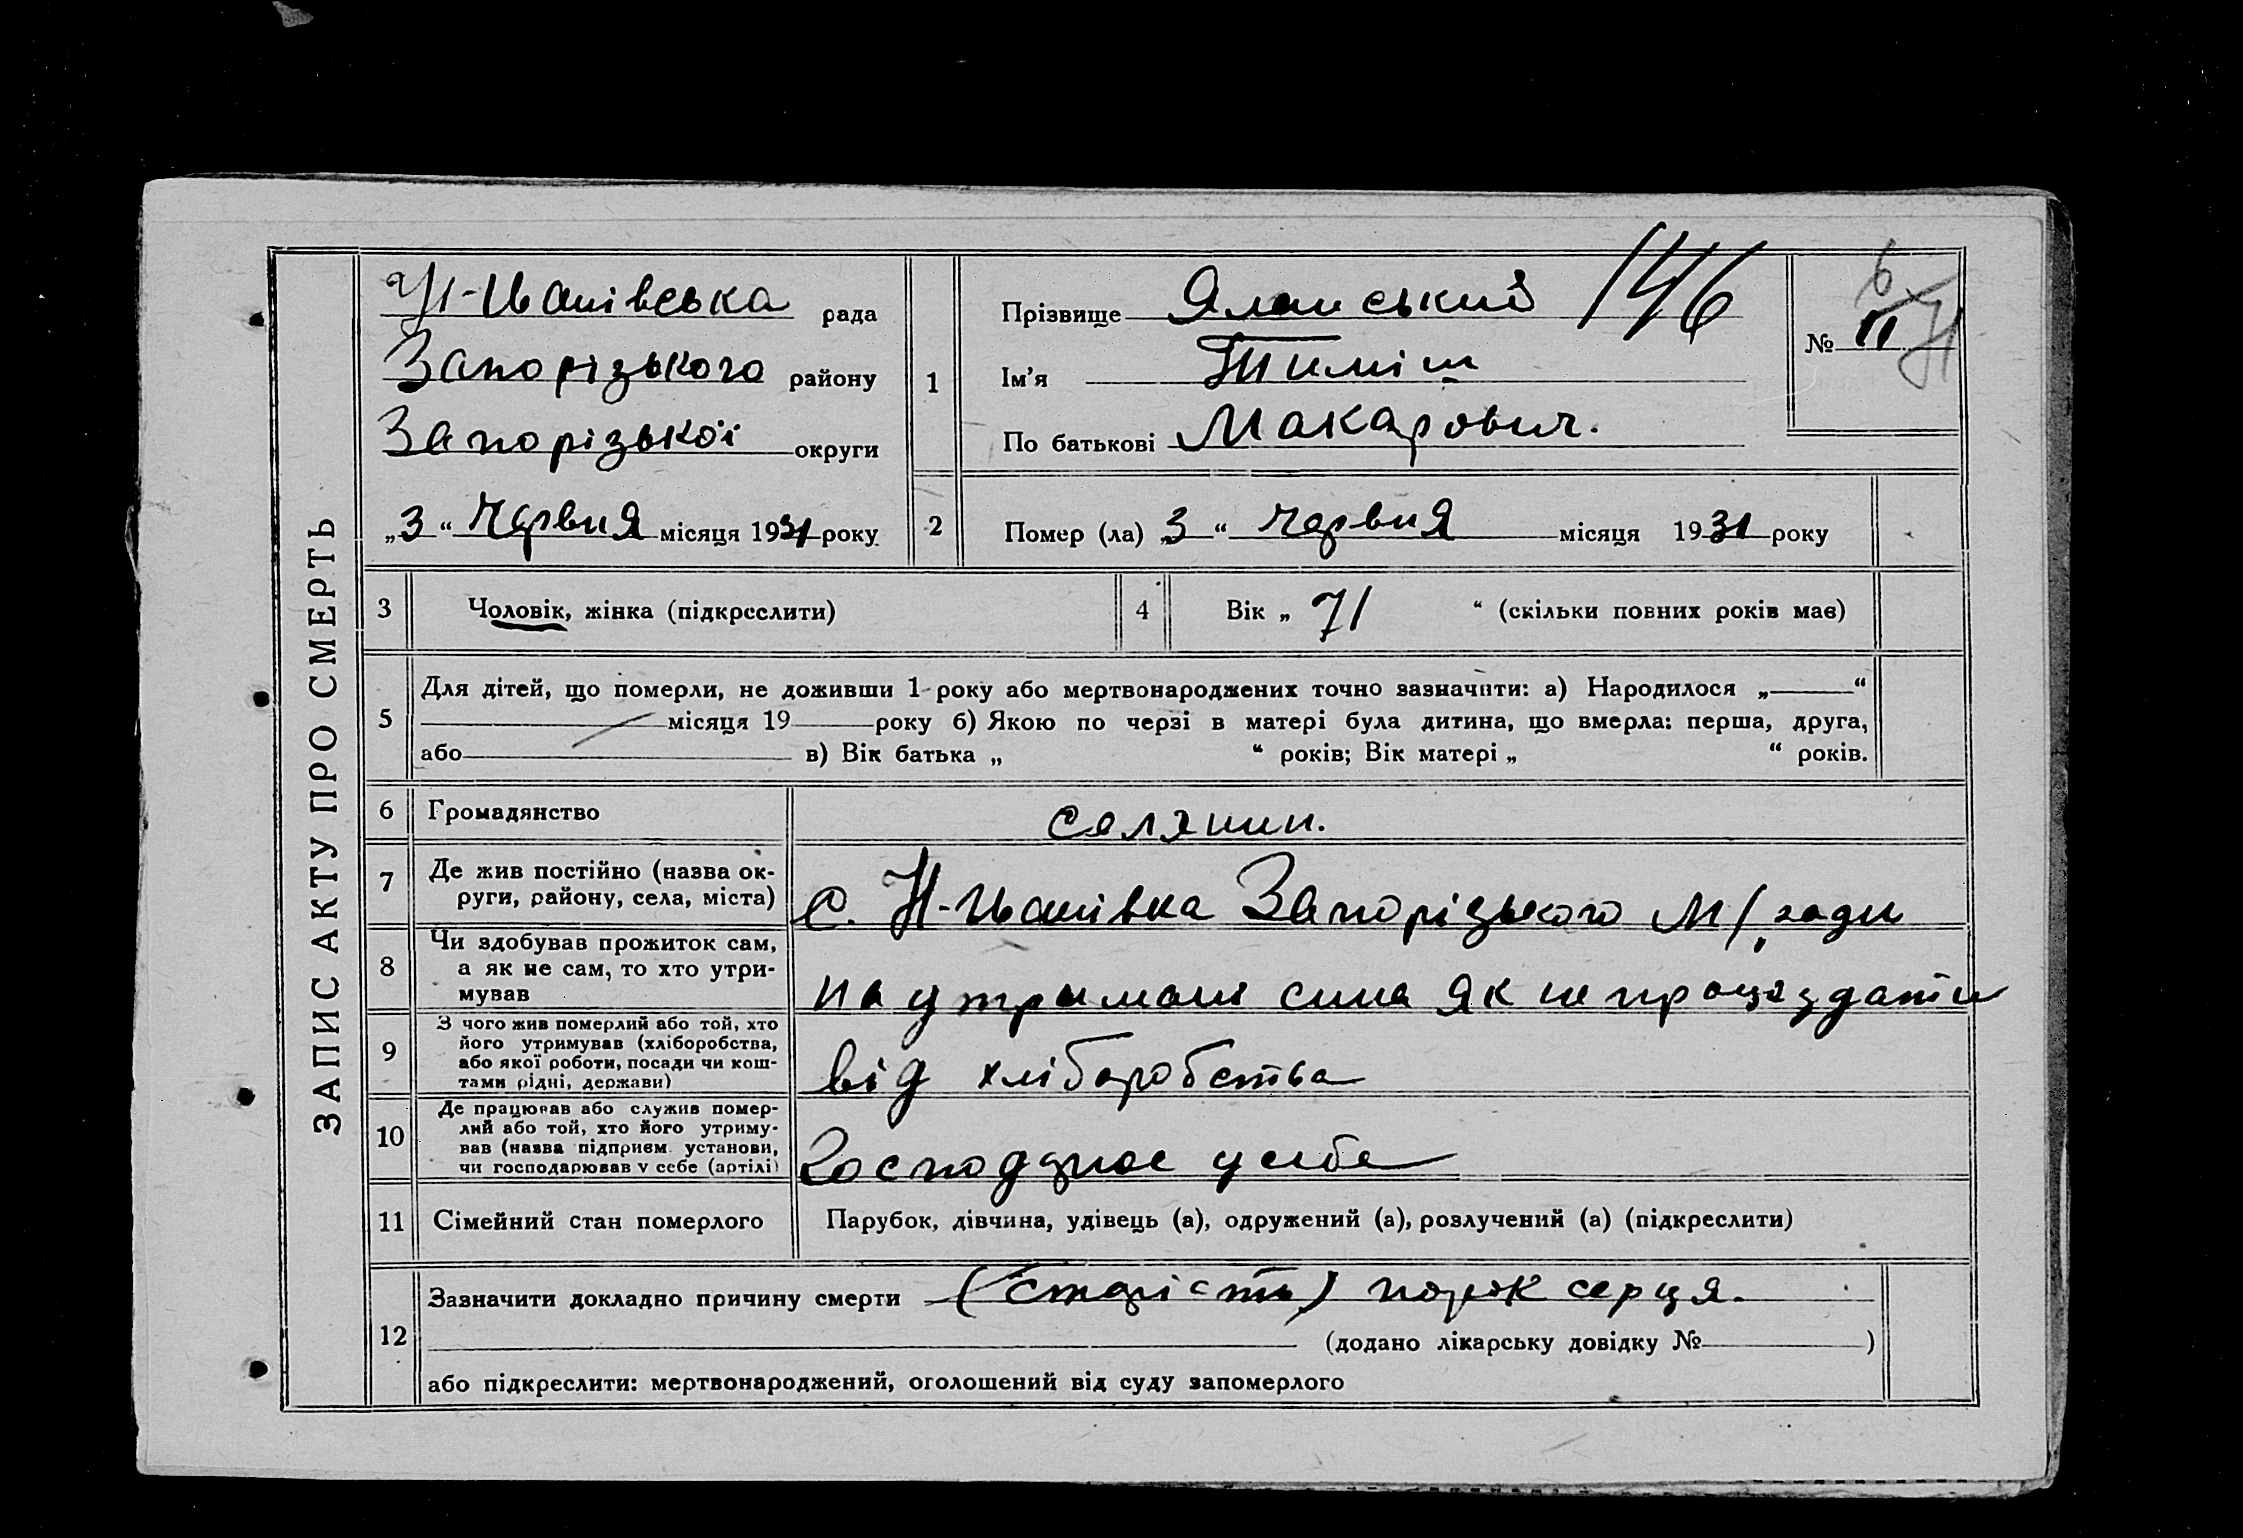 ЗАПИС АКТУ ПРО СМЕРТЬ
Н-Іванівська рада
Запорізького району
Запорізької округи
„3“ червня місяця 1931 року
1
Прізвище Яланський 146
Ім'я Тиміш
По батькові Макарович.
№ 11
6
71
2
Помер (ла) „3“ червня місяця 1931 року
3 Чоловік, жінка (підкреслити)
4 Вік „71“ (скільки повних років має)
5 Для дітей, що померли, не доживши 1 року або мертвонароджених точно зазначити: а) Народилося „ “
місяця 19 року б) Якою по черзі в матері була дитина, що вмерла: перша, друга,
або в) Вік батька „ “ років; Вік матері „ “ років.
6 Громадянство селянин.
7 Де жив постійно (назва ок-
руги, району, села, міста)
с. Н-Іванівка Запорізького М/ради
8 Чи здобував прожиток сам,
а як не сам, то хто утри-
мував
на утримані сина як не працездатн
9 З чого жив померлий або той, хто
його утримував (хліборобства,
або якої роботи, посади чи кош-
тами рідні, держави)
від хліборобства
10 Де працював або служив помер-
лий або той, хто його утриму-
вав (назва підприєм. установи,
чи господарював у себе (артілі)
Господарює у себе
11 Сімейний стан померлого Парубок, дівчина, удівець (а), одружений (а), розлучений (а) (підкреслити)
12 Зазначити докладно причину смерти (старість) порок серця.
(додано лікарську довідку № )
або підкреслити: мертвонароджений, оголошений від суду запомерлого